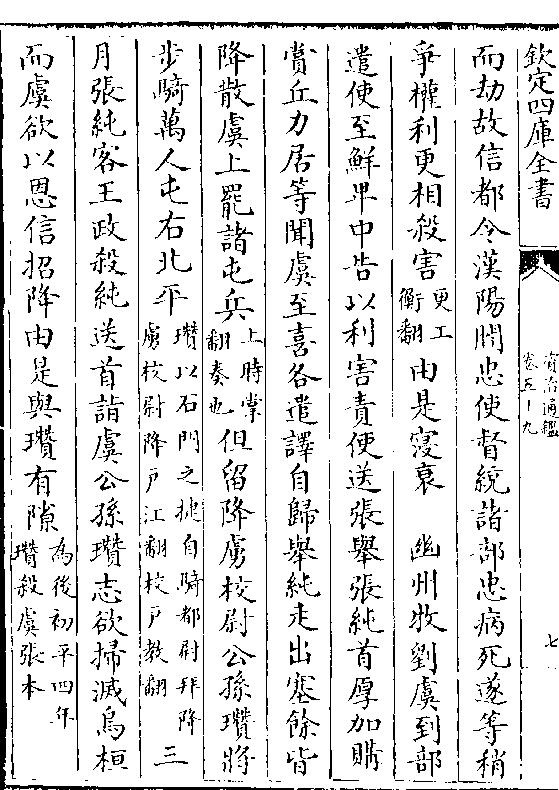 欽定四庫全書
資治通鑑
卷五十九
七
而劫故信都令漢陽閻忠使督統諸部忠病死遂等稍
爭權利更相殺害更工衡翻由是寖衰　幽州牧劉虞到部
遣使至鮮卑中告以利害責使送張舉張純首厚加購
賞丘力居等聞虞至喜各遣譯自歸舉純走出塞餘皆
降散虞上罷諸屯兵上時掌翻奏也但留降虜校尉公孫瓚將
步騎萬人屯右北平瓚以石門之捷自騎都尉拜降虜校尉降戶江翻校戶教翻三
月張純客王政殺純送首詣虞公孫瓚志欲掃滅烏桓
而虞欲以恩信招降由是與瓚有隙為後初平四年瓚殺虞張本